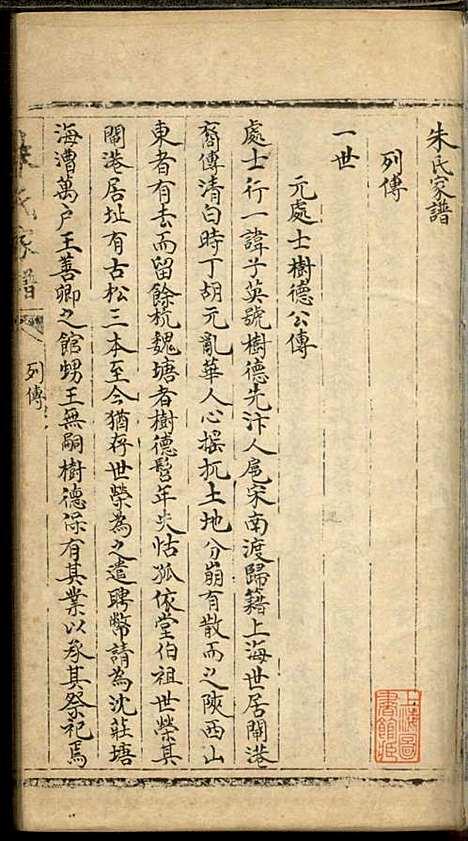 朱氏家譜
列傳
一世
元處士樹德公傳
處士行一諱子英號樹德先汴人扈宋南渡歸籍上海世居閘港
裔傳清白時丁胡元亂華人心搖扤土地分崩有散而之陝西山
東者有去而留餘杭魏塘者樹德髫年失怙孤依堂伯祖世榮其
閘港居址有古松三本至今猶存世榮為之遣聘幣請為沈莊塘
海漕萬戶王善卿之館甥王無嗣樹德保有其業以承其祭祀焉
朱氏家譜
列傳
上海圖書館藏